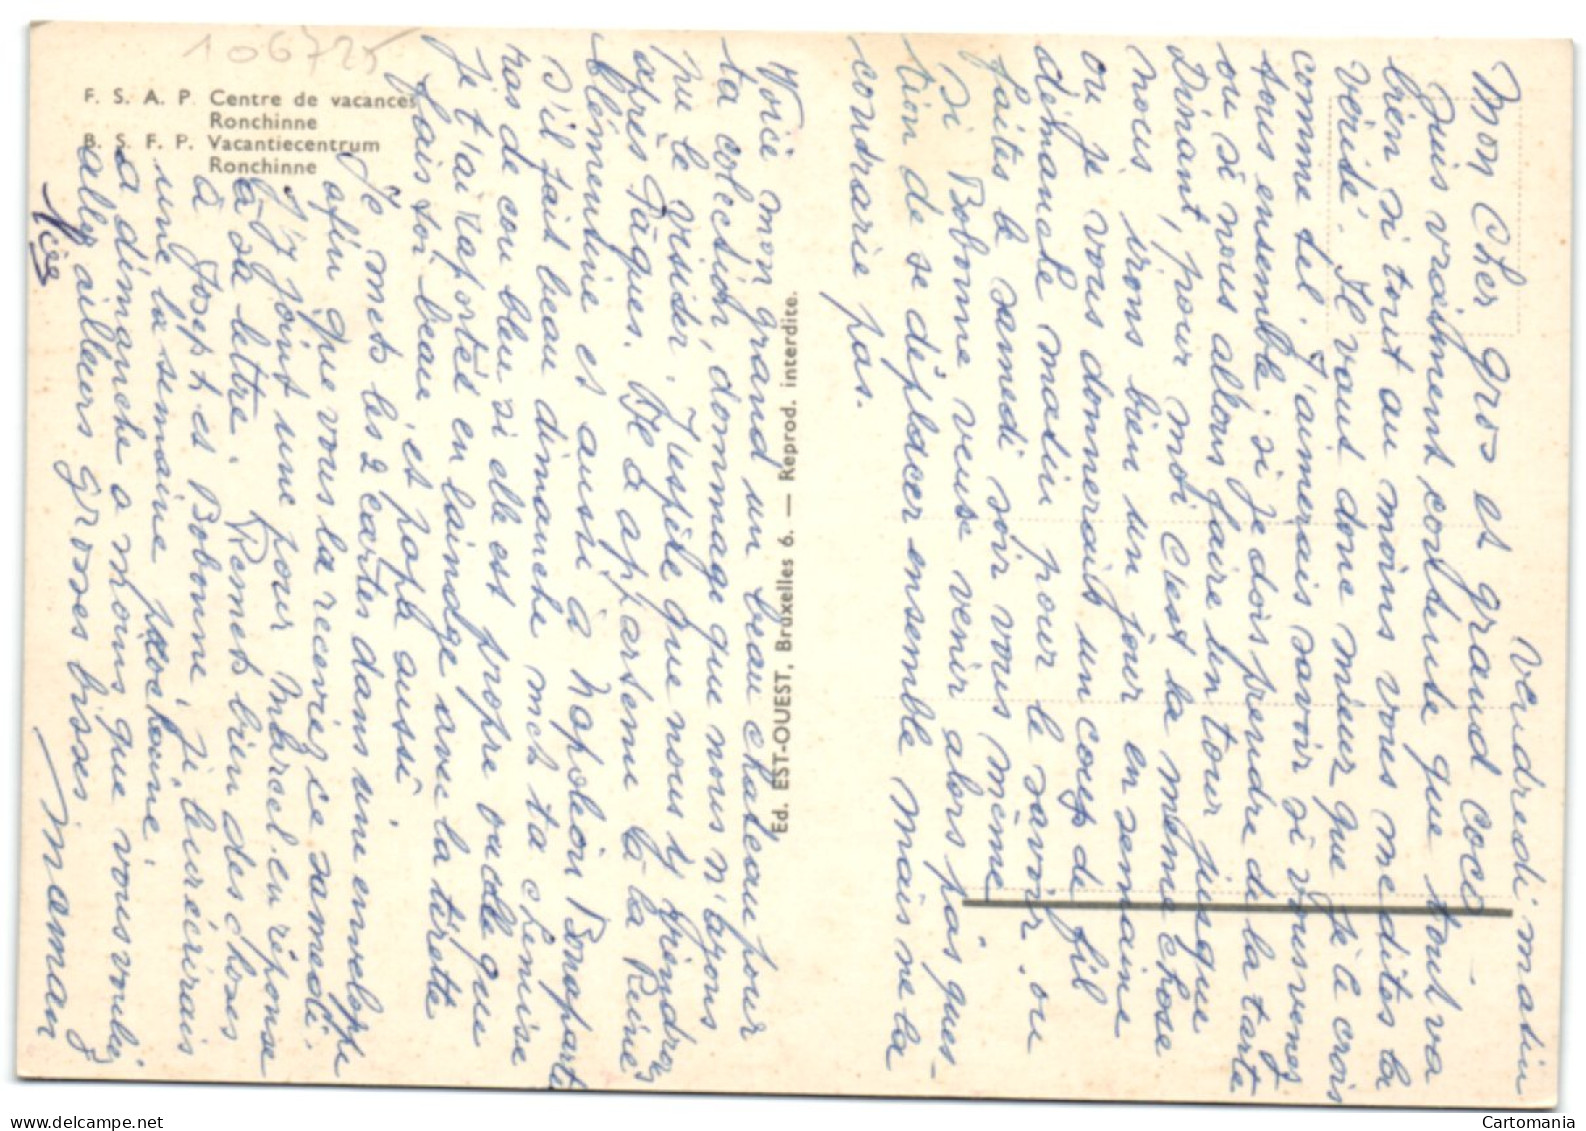 106725
F. S. A. P. Centre de vacances
Ronchinne
B. S. F. P. Vacantiecentrum
Ronchinne
Ed. EST-OUEST, Bruxelles 6. — Reprod. interdite.
vendredi matin
Mon cher gros et grand coco
suis vraiment contente que tout va
bien si tout au moins vous me dites la
vérité. Il vaut donc mieux que je le crois
comme tel. J'aimerais savoir si vous venez
tous ensemble si je dois prendre de la tarte
ou si nous allons faire un tour jusque
Dinant, pour moi c'est la même chose
nous irons bien un jour en semaine
ou je vous donnerais un coup de fil
dimanche matin pour le savoir. ou
faites le samedi soir vous même
Si Bobonne veut venir alors pas ques-
tion de se déplacer ensemble mais ne la
contrarie pas.
Voici mon grand un beau chateau pour
ta colection, dommage que nous n'ayons
pu le visiter. J'espère que nous y viendrons
après Pâques. Il a appartenu à la Reine
Clémentine et aussi à Napoléon Bonaparte
S'il fait beau dimanche mets ta chemise
ras de cou bleu si elle est propre ou celle que
je t'ai raportée en lainage avec la tirette
fais toi beau, et papa aussi.
Je mets les 2 cartes dans une enveloppe
afin que vous la receviez ce samedi.
J'y joint une pour Marcel en réponse
à sa lettre. Remets bien des choses
à Joseph et Bobonne, j'leur écrirais
une la semaine prochaine.
a dimanche a moins que vous vouliez
aller ailleurs grosses bises
Maman